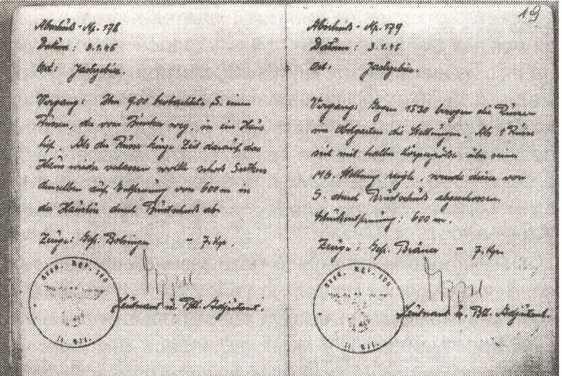 Abschuß-Nr. 178
Datum: 3.1.45
Ort: Jastrzebie.
Vorgang: Um 9.00 beobachtete S. einen
Russen, der vom Bunker weg, in ein Haus
lief. Als der Russe kurze Zeit darauf das
Haus wieder verlassen wollte schoß Sutkus
denselben auf Entfernung von 600 m in
der Haustür durch Brustschuß ab.
Zeuge: Gefr. - 7. Kp.
Leutnant u. Btl. Adjutant.
19
Abschuß-Nr. 179
Datum: 3.1.45
Ort: Jastrzebie.
Vorgang: Gegen 1530 bezogen die Russen
im Obstgarten die Stellungen. Als 1 Russe
sich mit halber Körpergröße über seine
MG. Stellung zeigte, wurde dieser von
S. durch Brustschuß abgeschossen.
Schußentfernung: 600 m.
Zeuge: Gefr. - 7. Kp.
Leutnant u. Btl. Adjutant.